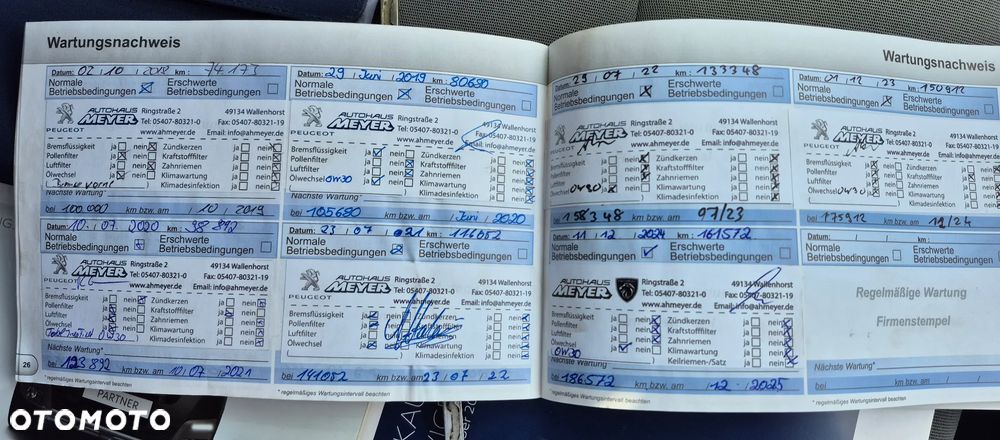 Wartungsnachweis
Datum: 02 / 10 / 2018 km: 74 173
Normale Betriebsbedingungen
Erschwerte Betriebsbedingungen
PEUGEOT
AUTOHAUS MEYER
Ringstraße 2
49134 Wallenhorst
Tel: 05407-80321-0
Fax: 05407-80321-19
www.ahmeyer.de
Email: info@ahmeyer.de
Bremsflüssigkeit ja nein Zündkerzen ja nein
Pollenfilter ja nein Kraftstofffilter ja nein
Luftfilter ja nein Zahnriemen ja nein
Ölwechsel ja nein Klimawartung ja nein
Klimadesinfektion ja nein
Nächste Wartung*
bei 100.000 km bzw. am / 10 / 2019
Datum: 29 / Juni / 2019 km: 80690
Normale Betriebsbedingungen
Erschwerte Betriebsbedingungen
PEUGEOT
AUTOHAUS MEYER
Ringstraße 2
49134 Wallenhorst
Tel: 05407-80321-0
Fax: 05407-80321-19
www.ahmeyer.de
Email: info@ahmeyer.de
Bremsflüssigkeit ja nein Zündkerzen ja nein
Pollenfilter ja nein Kraftstofffilter ja nein
Luftfilter ja nein Zahnriemen ja nein
Ölwechsel 0W30 ja nein Klimawartung ja nein
Klimadesinfektion ja nein
Nächste Wartung*
bei 105690 km bzw. am / Juni / 2020
Datum: 10 / 07 / 2020 km: 98 892
Normale Betriebsbedingungen
Erschwerte Betriebsbedingungen
PEUGEOT
AUTOHAUS MEYER
Ringstraße 2
49134 Wallenhorst
Tel: 05407-80321-0
Fax: 05407-80321-19
www.ahmeyer.de
Email: info@ahmeyer.de
Bremsflüssigkeit ja nein Zündkerzen ja nein
Pollenfilter ja nein Kraftstofffilter ja nein
Luftfilter ja nein Zahnriemen ja nein
Ölwechsel ja nein Klimawartung ja nein
0W30
Klimadesinfektion ja nein
Nächste Wartung*
bei 128 892 km bzw. am 10 / 07 / 2021
* regelmäßiges Wartungsintervall beachten
26
Datum: 23 / 07 / 021 km: 111052
Normale Betriebsbedingungen
Erschwerte Betriebsbedingungen
PEUGEOT
AUTOHAUS MEYER
Ringstraße 2
49134 Wallenhorst
Tel: 05407-80321-0
Fax: 05407-80321-19
www.ahmeyer.de
Email: info@ahmeyer.de
Bremsflüssigkeit ja nein Zündkerzen ja nein
Pollenfilter ja nein Kraftstofffilter ja nein
Luftfilter ja nein Zahnriemen ja nein
Ölwechsel ja nein Klimawartung ja nein
Klimadesinfektion ja nein
Nächste Wartung*
bei 141052 km bzw. am 23 / 07 / 22
* regelmäßiges Wartungsintervall beachten
Wartungsnachweis
Datum: 29 / 07 / 22 km: 133348
Normale Betriebsbedingungen
Erschwerte Betriebsbedingungen
PEUGEOT
AUTOHAUS MEYER
Ringstraße 2
49134 Wallenhorst
Tel: 05407-80321-0
Fax: 05407-80321-19
www.ahmeyer.de
Email: info@ahmeyer.de
Bremsflüssigkeit ja nein Zündkerzen ja nein
Pollenfilter ja nein Kraftstofffilter ja nein
Luftfilter ja nein Zahnriemen ja nein
Ölwechsel 0W30 ja nein Klimawartung ja nein
Klimadesinfektion ja nein
Nächste Wartung*
bei 158348 km bzw. am 07/23
Datum: 01 / 12 / 23 km: 150912
Normale Betriebsbedingungen
Erschwerte Betriebsbedingungen
PEUGEOT
AUTOHAUS MEYER
Ringstraße 2
49134 Wallenhorst
Tel: 05407-80321-0
Fax: 05407-80321-19
www.ahmeyer.de
Email: info@ahmeyer.de
Bremsflüssigkeit ja nein Zündkerzen ja nein
Pollenfilter ja nein Kraftstofffilter ja nein
Luftfilter ja nein Zahnriemen ja nein
Ölwechsel 0W30 ja nein Klimawartung ja nein
Klimadesinfektion ja nein
Nächste Wartung*
bei 175912 km bzw. am 12/24
Datum: 11 / 12 / 2024 km: 161572
Normale Betriebsbedingungen
Erschwerte Betriebsbedingungen
AUTOHAUS MEYER
Ringstraße 2
49134 Wallenhorst
Tel: 05407-80321-0
Fax: 05407-80321-19
www.ahmeyer.de
Email: info@ahmeyer.de
Bremsflüssigkeit ja nein Zündkerzen ja nein
Pollenfilter ja nein Kraftstofffilter ja nein
Luftfilter ja nein Zahnriemen ja nein
Ölwechsel ja nein Klimawartung ja nein
0W30
Keilriemen-/Satz ja nein
Nächste Wartung*
bei 186572 km bzw. am / 12 / 2025
* regelmäßiges Wartungsintervall beachten
Datum: / / km:
Normale Betriebsbedingungen
Erschwerte Betriebsbedingungen
Regelmäßige Wartung
Firmenstempel
Nächste Wartung*
bei km bzw. am / /
* regelmäßiges Wartungsintervall beachten
PARTNER
OTOMOTO